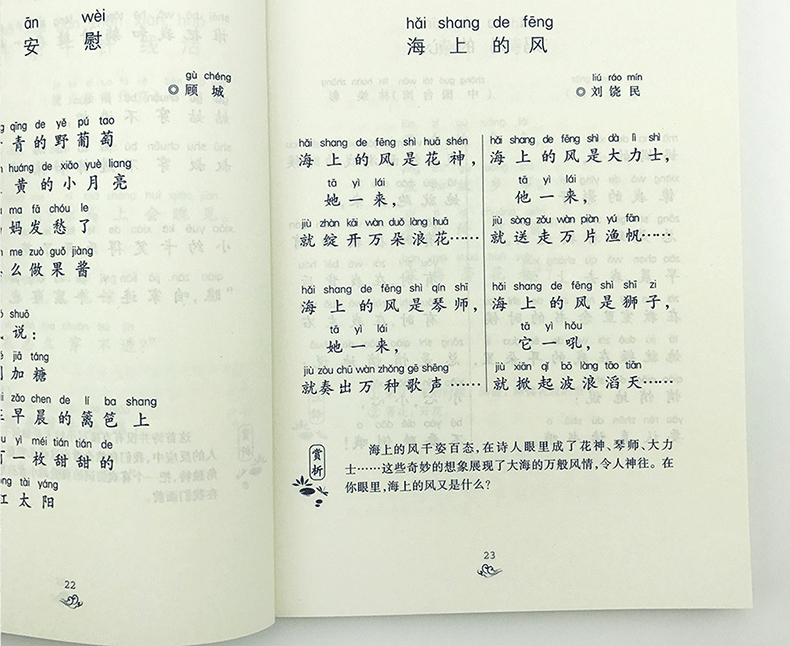 ān wèi
安 慰
gù chéng
◎顾 城
qīng de yě pú tao
青的野葡萄
huáng de xiǎo yuè liang
黄的小月亮
ma fā chóu le
妈发愁了
me zuò guǒ jiàng
么做果酱
shuō
说：
jiā táng
加糖
zǎo chen de lí ba shang
早晨的篱笆上
yì méi tián tián de
一枚甜甜的
tài yáng
太阳
22
hǎi shang de fēng
海 上 的 风
liú ráo mín
◎刘饶民
hǎi shang de fēng shì huā shén
海上的风是花神，
tā yì lái
她一来，
jiù zhàn kāi wàn duǒ làng huā
就绽开万朵浪花……
hǎi shang de fēng shì qín shī
海上的风是琴师，
tā yì lái
她一来，
jiù zòu chū wàn zhǒng gē shēng
就奏出万种歌声……
hǎi shang de fēng shì dà lì shì
海上的风是大力士，
tā yì lái
他一来，
jiù sòng zǒu wàn piàn yú fān
就送走万片渔帆……
hǎi shang de fēng shì shī zi
海上的风是狮子，
tā yì hǒu
它一吼，
jiù xiān qǐ bō làng tāo tiān
就掀起波浪滔天……
赏析
海上的风千姿百态，在诗人眼里成了花神、琴师、大力
士……这些奇妙的想象展现了大海的万般风情，令人神往。在
你眼里，海上的风又是什么？
23